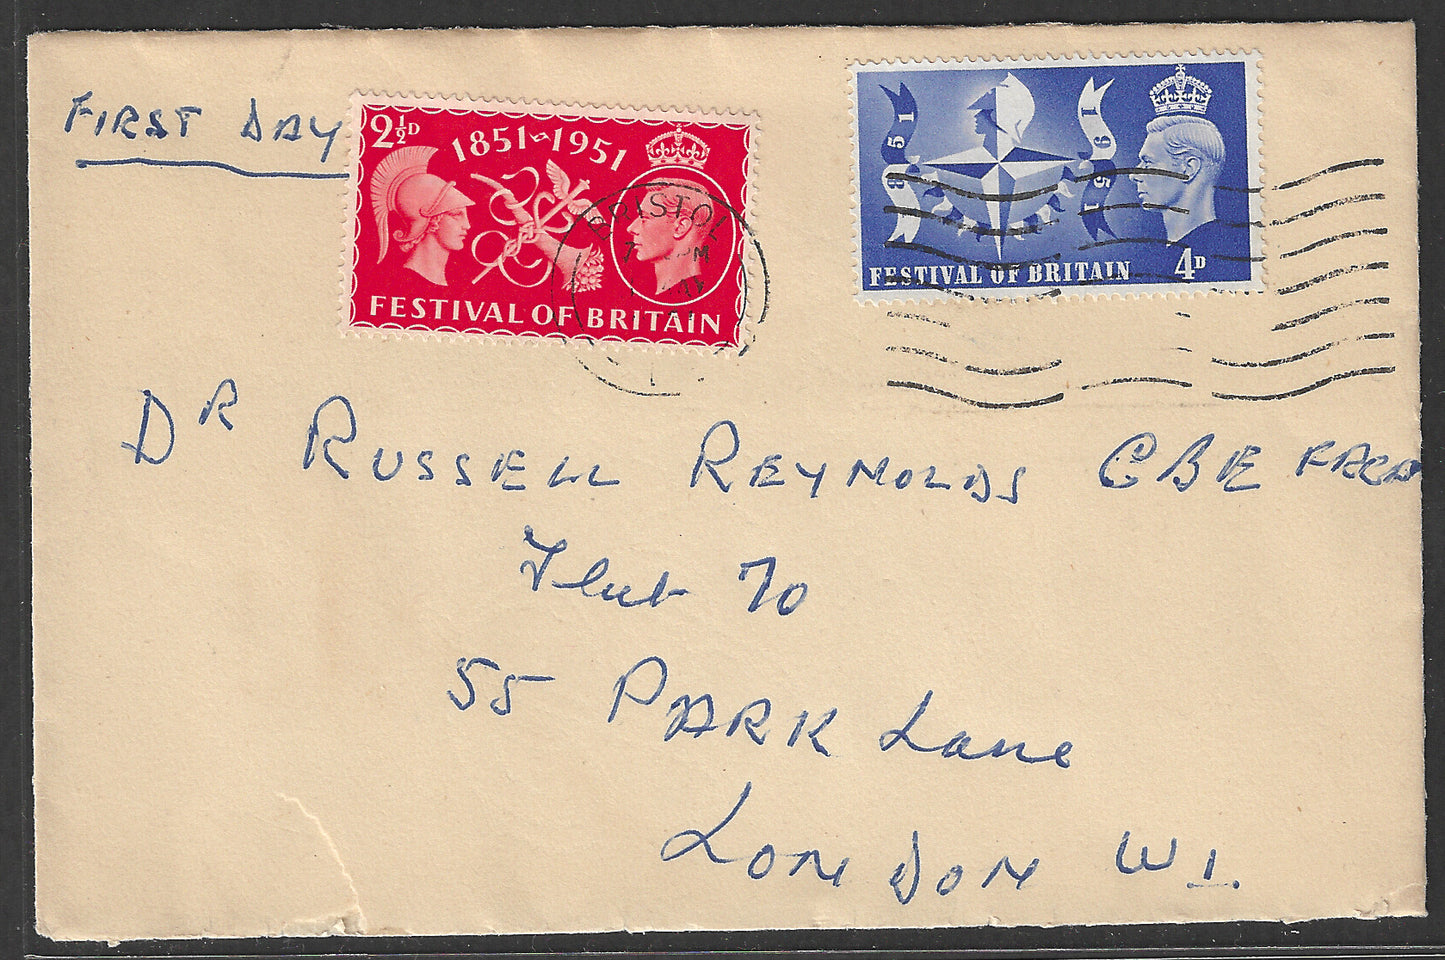 FIRST DAY
2½D
1851-1951
FESTIVAL OF BRITAIN
BRISTOL
7 PM
MAY
1851 1951
FESTIVAL OF BRITAIN 4D
DR RUSSELL REYNOLDS CBE FRCP
Flat 70
55 PARK Lane
LONDON W1.